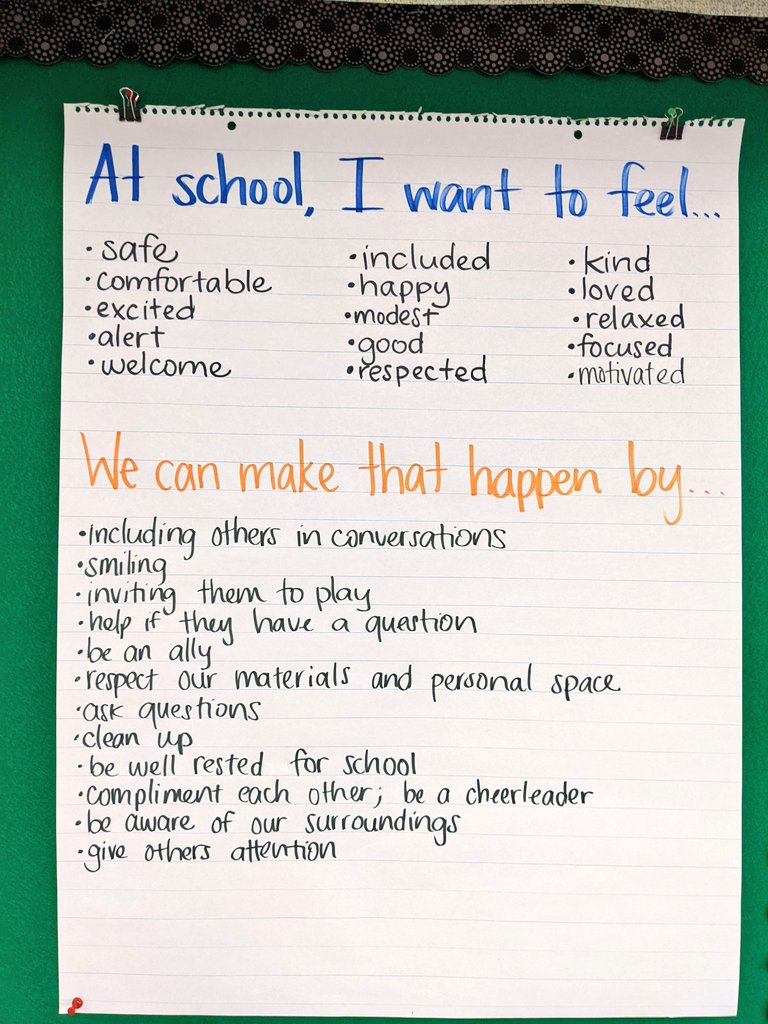 At school, I want to feel...
• safe
• comfortable
• excited
• alert
• welcome
• included
• happy
• modest
• good
• respected
• kind
• loved
• relaxed
• focused
• motivated
We can make that happen by...
• including others in conversations
• smiling
• inviting them to play
• help if they have a question
• be an ally
• respect our materials and personal space
• ask questions
• clean up
• be well rested for school
• compliment each other; be a cheerleader
• be aware of our surroundings
• give others attention